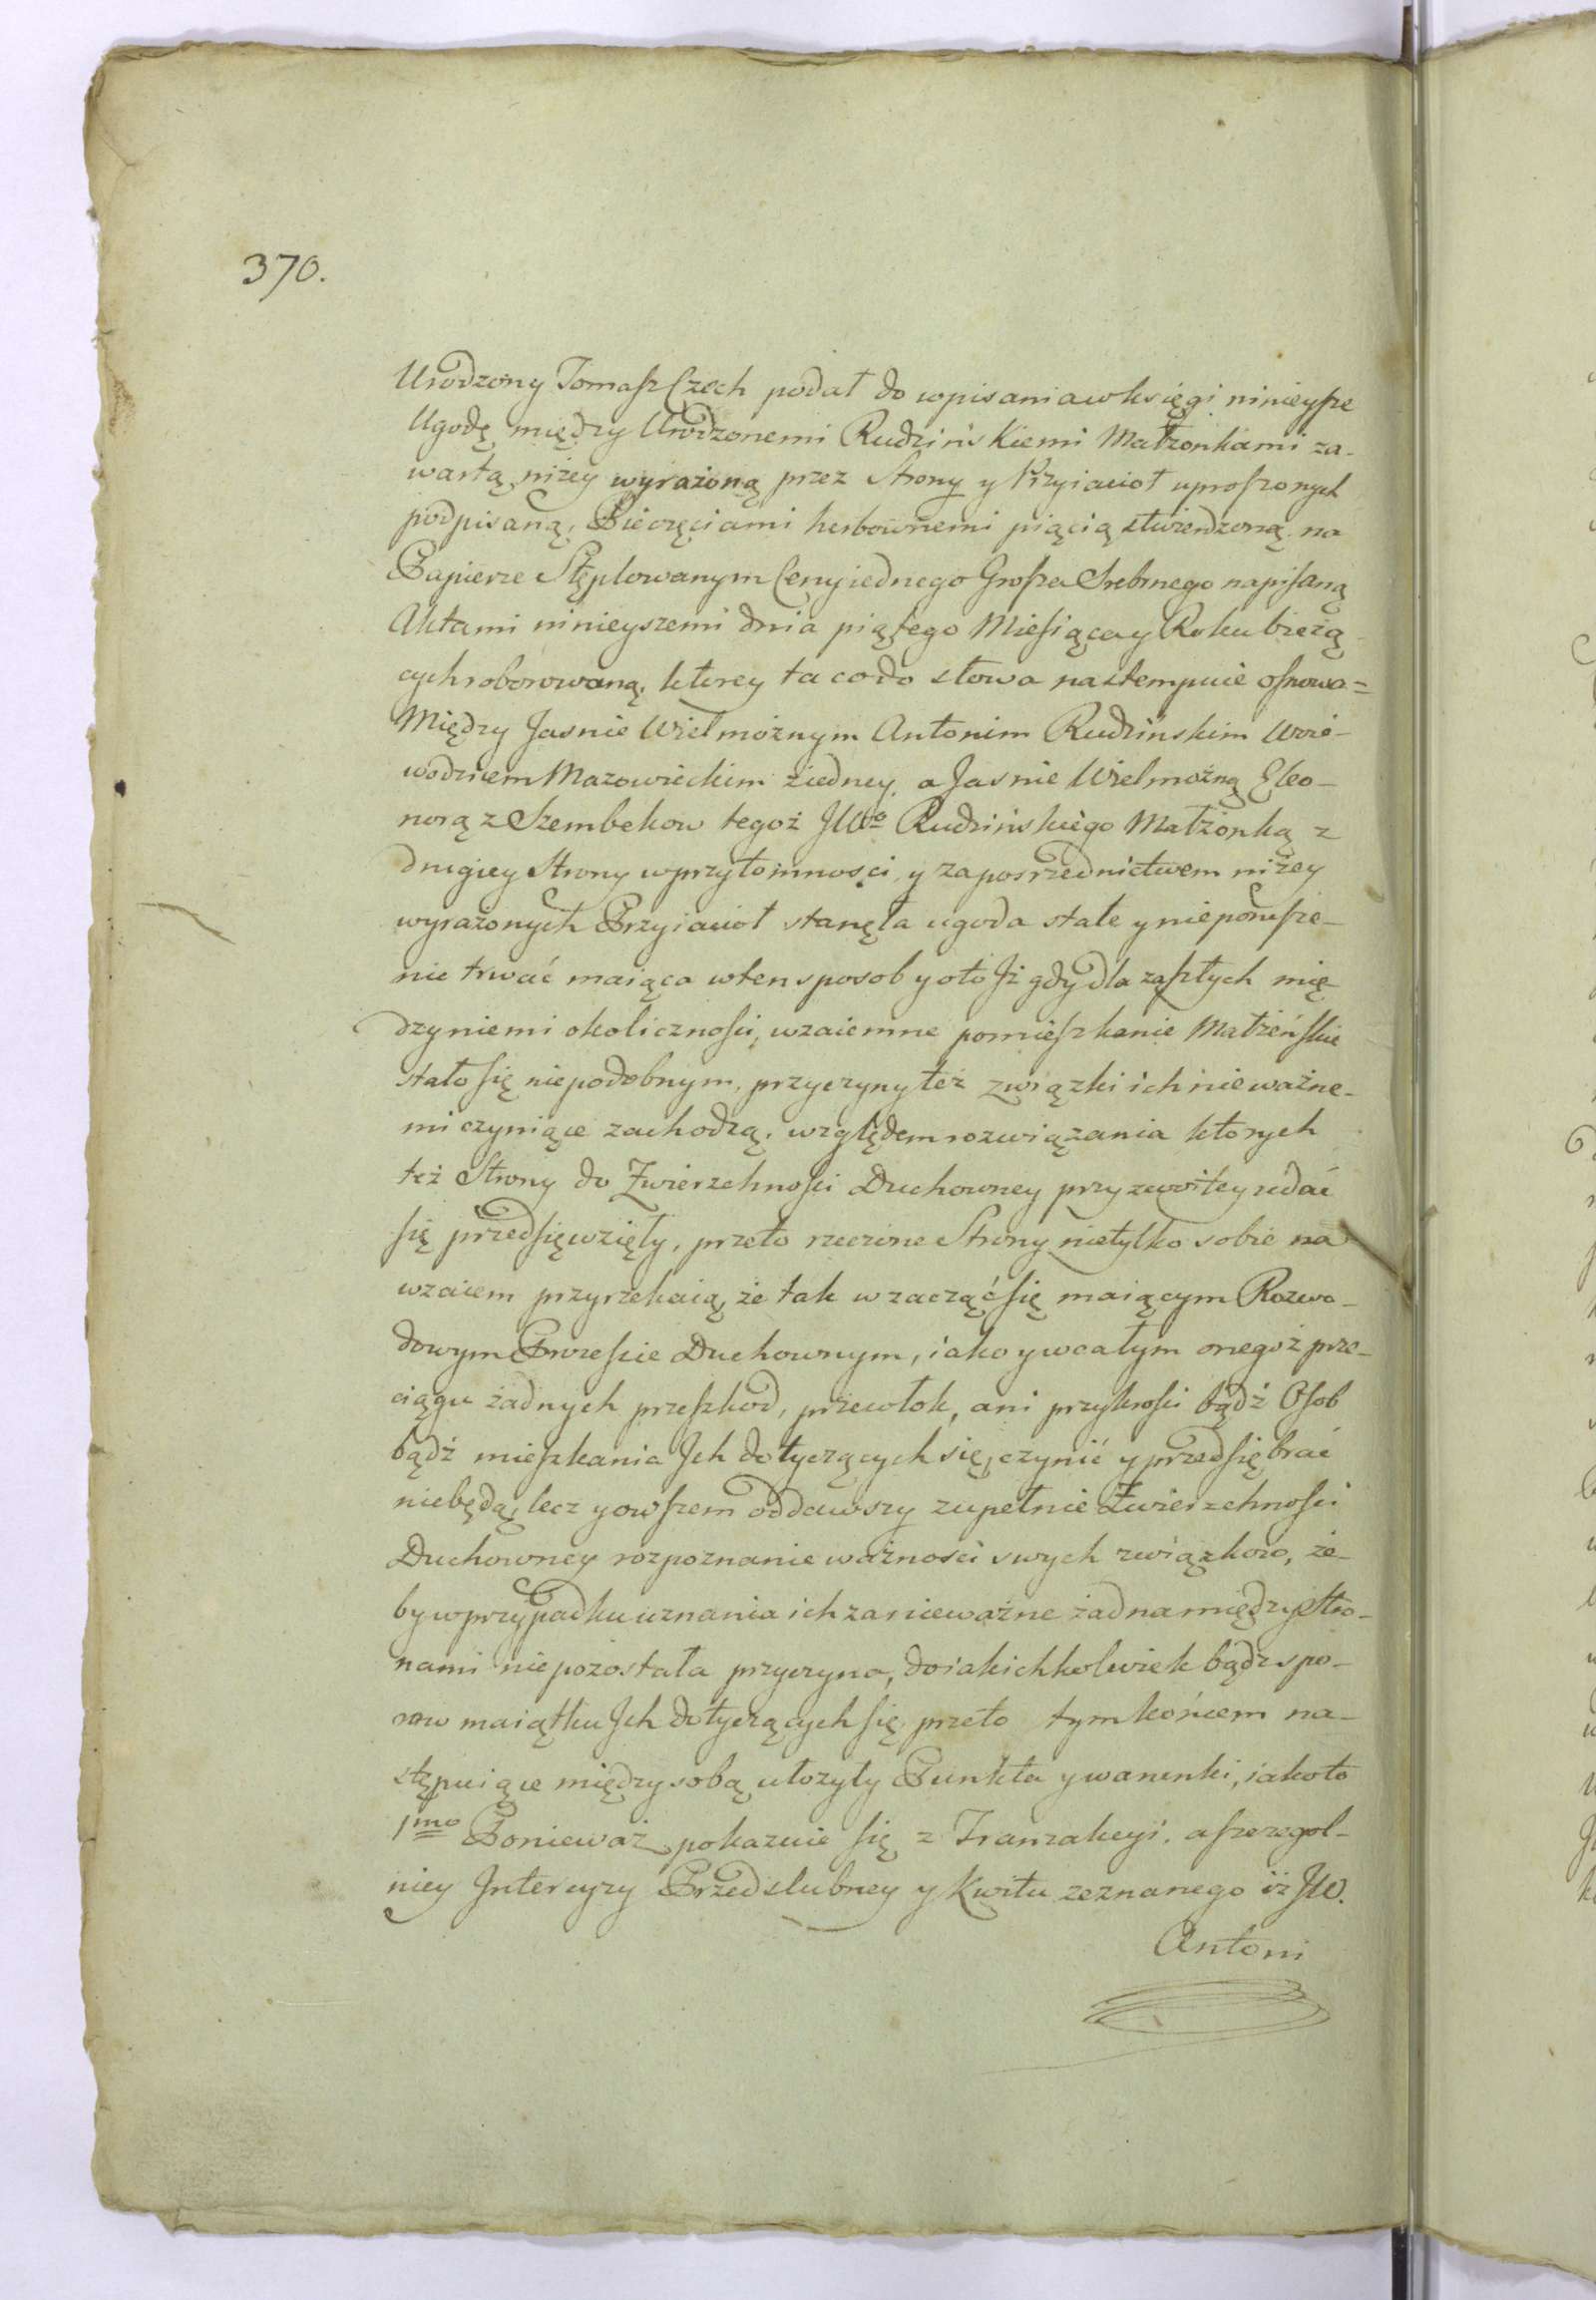 370.
Urodzony Tomasz Czech podał do wpisania w księgi ninieysze
Ugodę między Urodzonemi Rudzińskiemi Małżonkami za-
wartą, niżey wyrażoną przez Strony y Przyiacioł uproszonych
podpisaną, Pieczęciami herbownemi piącią ztwierdzoną, na
Papierze Stęplowanym Ceny iednego Grosza Srebrnego napisaną
Aktami ninieyszemi dnia piątego Miesiąca y Roku bieżą-
cych roborowaną, ktorey ta co do słowa nastempuie osnowa=
Między Jasnie Wielmożnym Antonim Rudzińskim Woie-
wodzicem Mazowieckim z iedney, a Jasnie Wielmożną Eleo-
norą z Szembekow tegoż JWo Rudzińskiego Małżonką z
drugiey Strony w przytomnosci, y za posrzednictwem niżey
wyrażonych Przyiacioł stanęła ugoda stale y nieporusze-
nie trwać maiąca w ten sposob y oto Jż gdy dla zaszłych mię-
dzy niemi okolicznosci, wzaiemne pomieszkanie Małżeńskie
stało się niepodobnym, przyczyny też związki ich nieważne-
mi czyniące zachodzą, względem rozwiązania ktorych
też Strony do Zwierzchnosci Duchowney przyzwoitey udać
się przedsięwzięły, przeto rzeczone Strony nietylko sobie na
wzaiem przyrzekaią, że tak w zacząć się maiącym Rozwo-
dowym Processie Duchownym, iako y w całym onegoż prze-
ciągu żadnych przeszkod, przewłok, ani przykrosci bądź Osob
bądź mieszkania Jch dotyczących się, czynić y przedsiębrać
niebędą, lecz y owszem oddawszy zupełnie Zwierzchnosci
Duchowney rozpoznanie ważnosci swych związkow, że-
by w przypadku uznania ich za nieważne żadna między Stro-
nami niepozostała przyczyna, do iakichkolwiek bądz spo-
row maiątku Jch dotyczących się, przeto tym końcem na-
stępuiące między sobą ułożyły Punkta y warunki, iakoto
1mo Ponieważ pokazuie się z Tranzakcyi, a szczegol-
niey Jntercyzy Przedslubney y Kwitu zeznanego iż JW.
Antoni